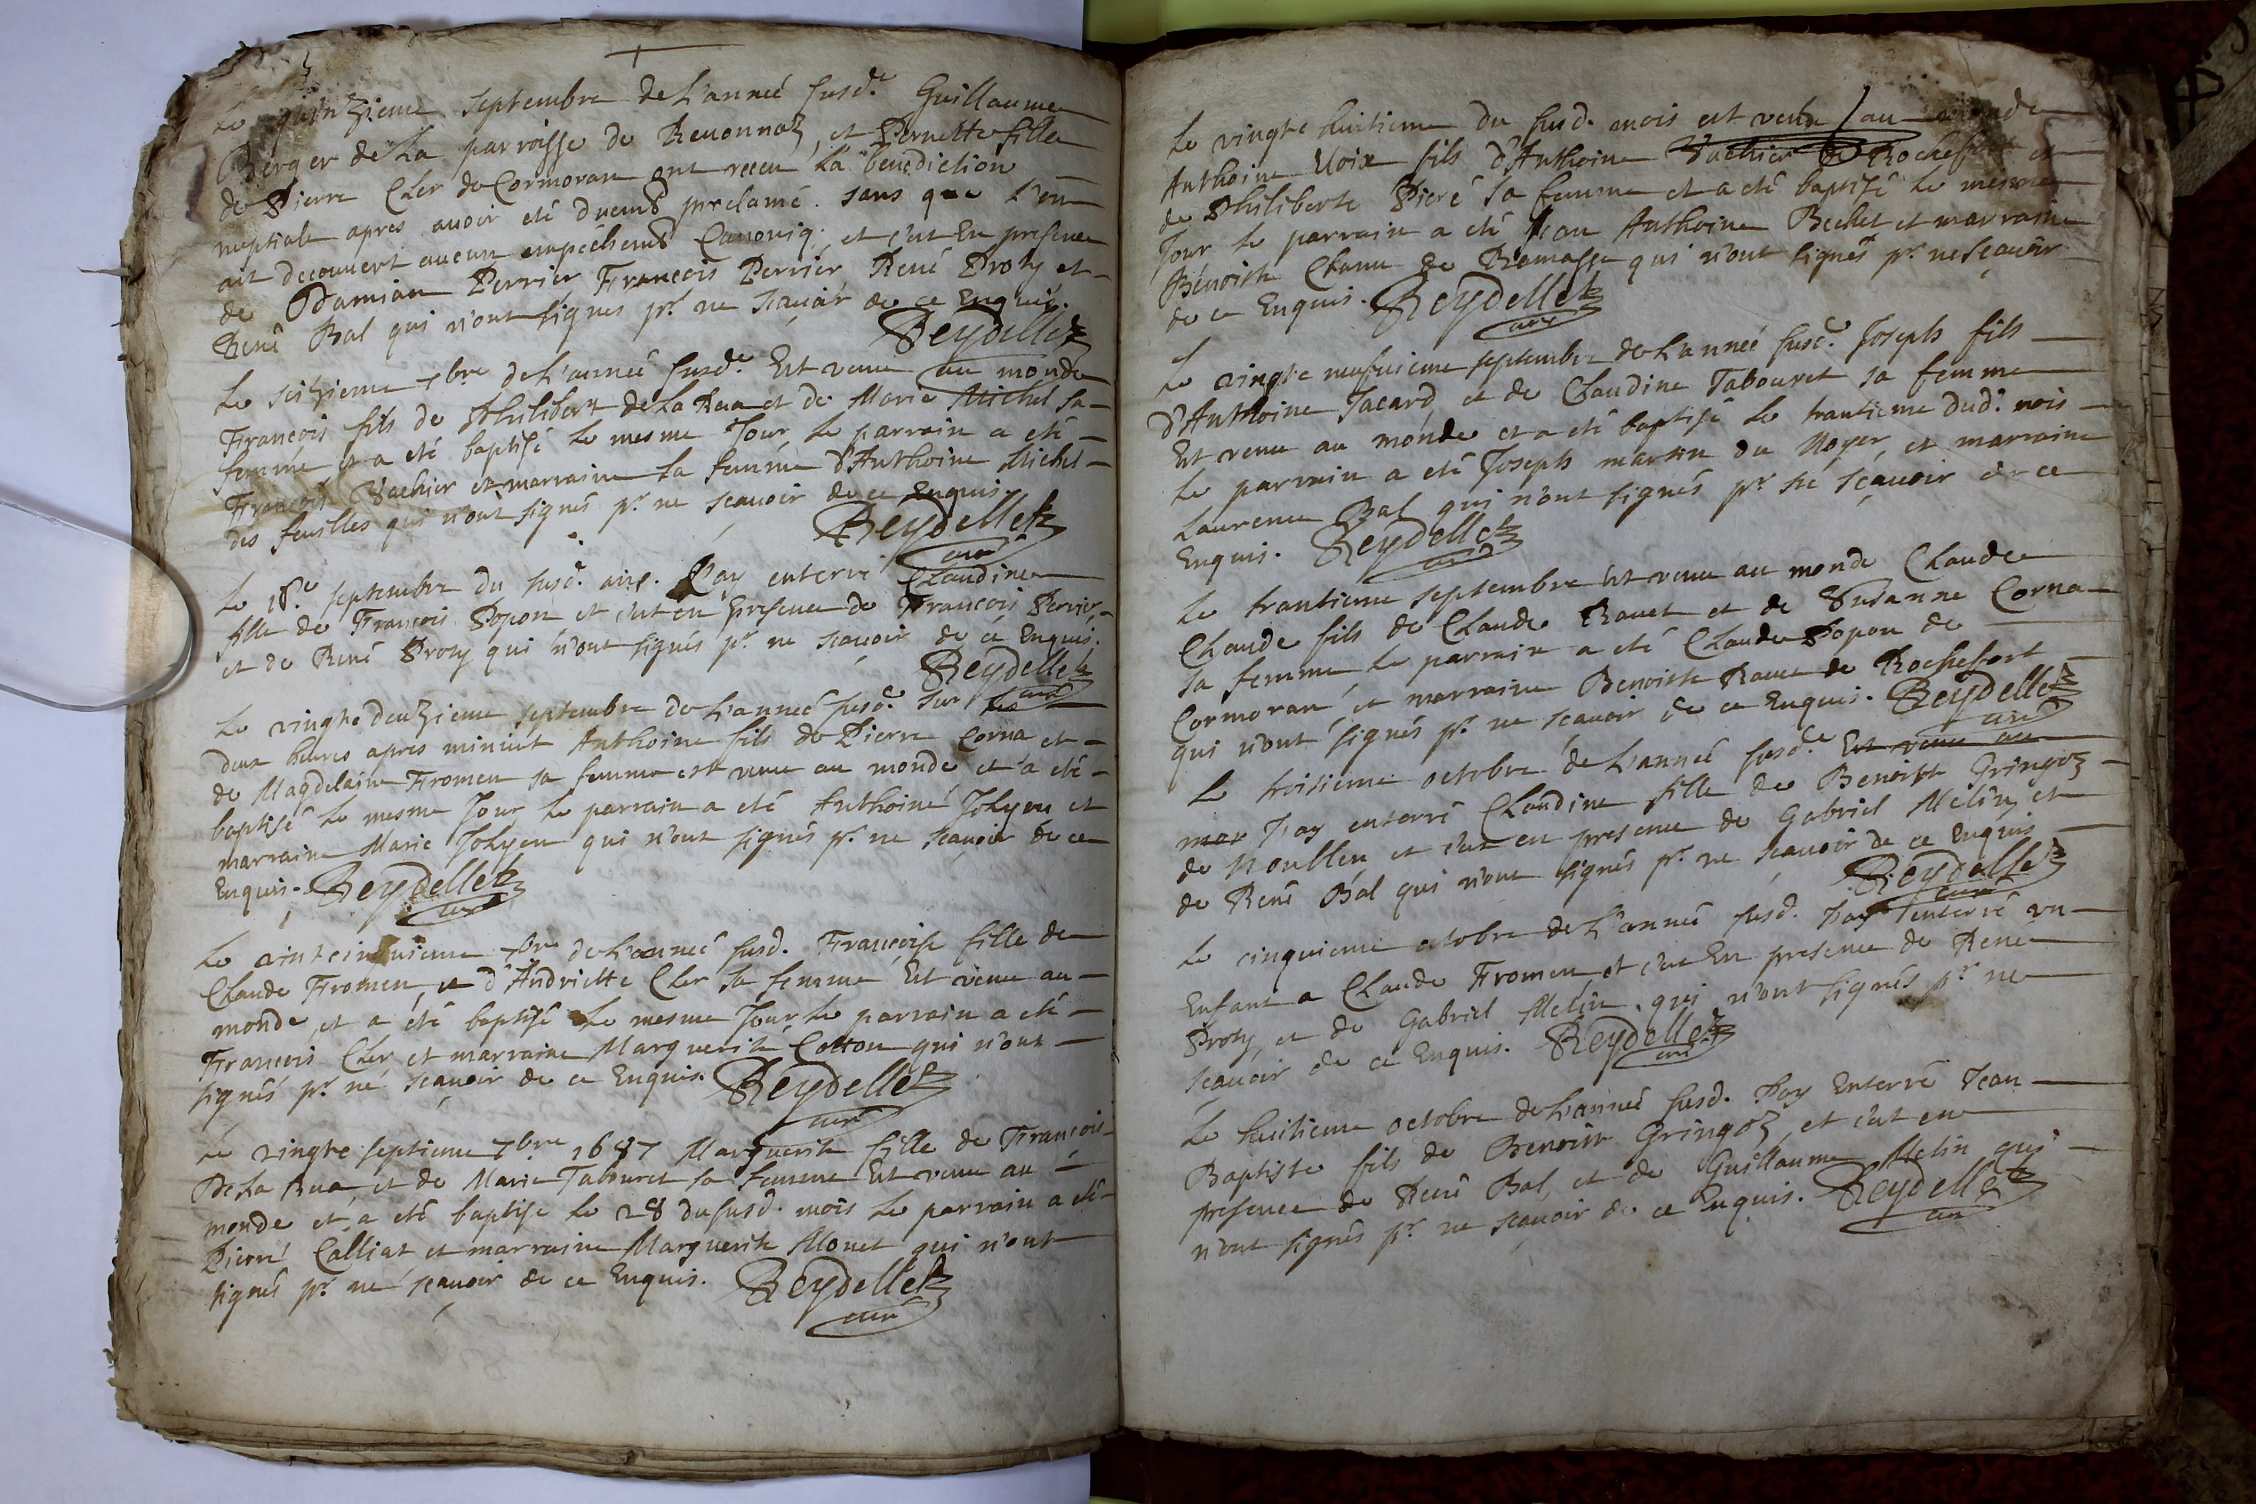 Le quinzieme septembre de L'anneé susd.e Guillaume
Berger de La parroisse de Reuonnaz, et Pernette fille
de Pierre Cler de Cormoran ont receu La benediction
nuptiale apres auoir eté duem.t proclamé. sans que L'on
ait decouvert aucun empéchem.t Canoniq. et c'est En presence
de Damian Perrier François Perrier René Prost et
René Bal qui n'ont signés p.r ne sçauoir de ce Enquis.
Reydellet
Le seizieme 7bre de L'anneé susd.e Est venu au monde
François fils de Philibert de La Rua et de Marie Michel sa
femme et a eté baptisé Le mesme Jour, Le parrain a eté
François Vachier et marraine La femme d'Anthoine Michel
des feuilles qui n'ont signés p.r ne sçauoir de ce Enquis.
Reydellet
curé
Le 18.e septembre du susd. an. J'ay enterré Claudine
fille de François Popon et c'est en presence de François Perrier
et de René Prost qui n'ont signés p.r ne sçauoir de ce Enquis.
Reydellet
curé
Le vingte deuzieme septembre de L'anneé susd.e sur les
deux heures apres minuit Anthoine fils de Pierre Corna et
de Magdelaine Fromen sa femme est venu au monde et a eté
baptisé Le mesme Jour Le parrain a eté Anthoine Jolyen et
marraine Marie Jolyen qui n'ont signés p.r ne sçauoir de ce
Enquis. Reydellet
curé
Le vintcinquieme 7bre de L'anneé susd. Françoise fille de
Claude Fromen, et d'Andriette Cler sa femme Est venue au
monde, et a eté baptisé Le mesme Jour Le parrain a eté
François Cler et marraine Marguerite Cotton qui n'ont
signés p.r ne sçauoir de ce Enquis. Reydellet
curé
Le vingte septieme 7bre 1687 Marguerite fille de François
De La Rua, et de Marie Tabouret sa femme Est venue au
monde et a eté baptisé Le 28 du susd. mois Le parrain a eté
Pierre Calliat et marraine Marguerite Monet qui n'ont
signés p.r ne sçauoir de ce Enquis. Reydellet
curé
Le vingte huitieme du susd. mois est venu au monde
Anthoine fils d'Anthoine Vachier de Rochefort et
de Philiberte Picré sa femme et a eté baptisé Le mesme
Jour Le parrain a eté Jean Anthoine Bechet et marraine
Benoiste Chanu de Ramasse qui n'ont signés p.r ne sçauoir
de ce Enquis. Reydellet
curé
Le vingte neufuieme septembre de L'anneé susd.e Joseph fils
d'Anthoine Jacard, et de Claudine Tabouret sa femme
Est venu au monde et a eté baptisé Le trantieme dud. mois
Le parrain a eté Joseph marton du Noyer, et marraine
Laurence Bal qui n'ont signés p.r ne sçauoir de ce
Enquis. Reydellet
curé
Le trantieme septembre Est venu au monde Claude
Claude fils de Claude Rauet et de Susanne Corna
sa femme Le parrain a eté Claude Popon de
Cormoran, et marraine Benoiste Rauet de Rochefort
qui n'ont signés p.r ne sçauoir de ce Enquis. Reydellet
curé
Le troisieme octobre de L'anneé susd.e Est venue au
mon J'ay enterré Claudine fille de Benoist Gringoz
de Noublen et c'est en presence de Gabriel Melin, et
de René Bal qui n'ont signés p.r ne sçauoir de ce Enquis
Reydellet
curé
Le cinquieme octobre de L'anneé susd. J'ay enterré vn
Enfant a Claude Fromen, et c'est En presence de René
Prost, et de Gabriel Melin qui n'ont signés p.r ne
sçauoir de ce Enquis. Reydellet
curé
Le huitieme octobre de L'anneé susd. J'ay Enterré Jean
Baptiste fils de Benoist Gringoz, et c'est en
presence de René Bal, et de Guillaume Melin qui
n'ont signés p.r ne sçauoir de ce Enquis. Reydellet
curé